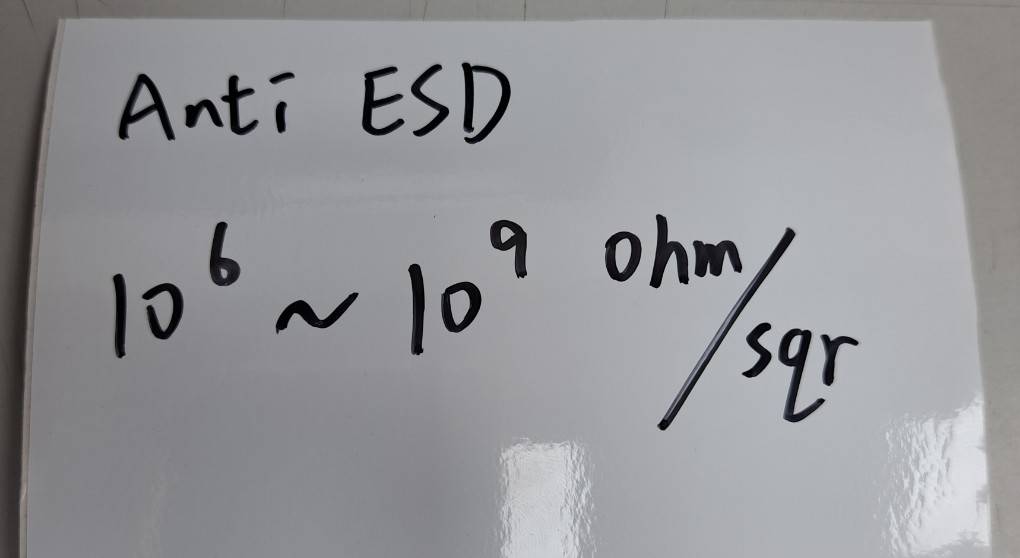 Anti ESD
10⁶ ~ 10⁹ ohm/sqr